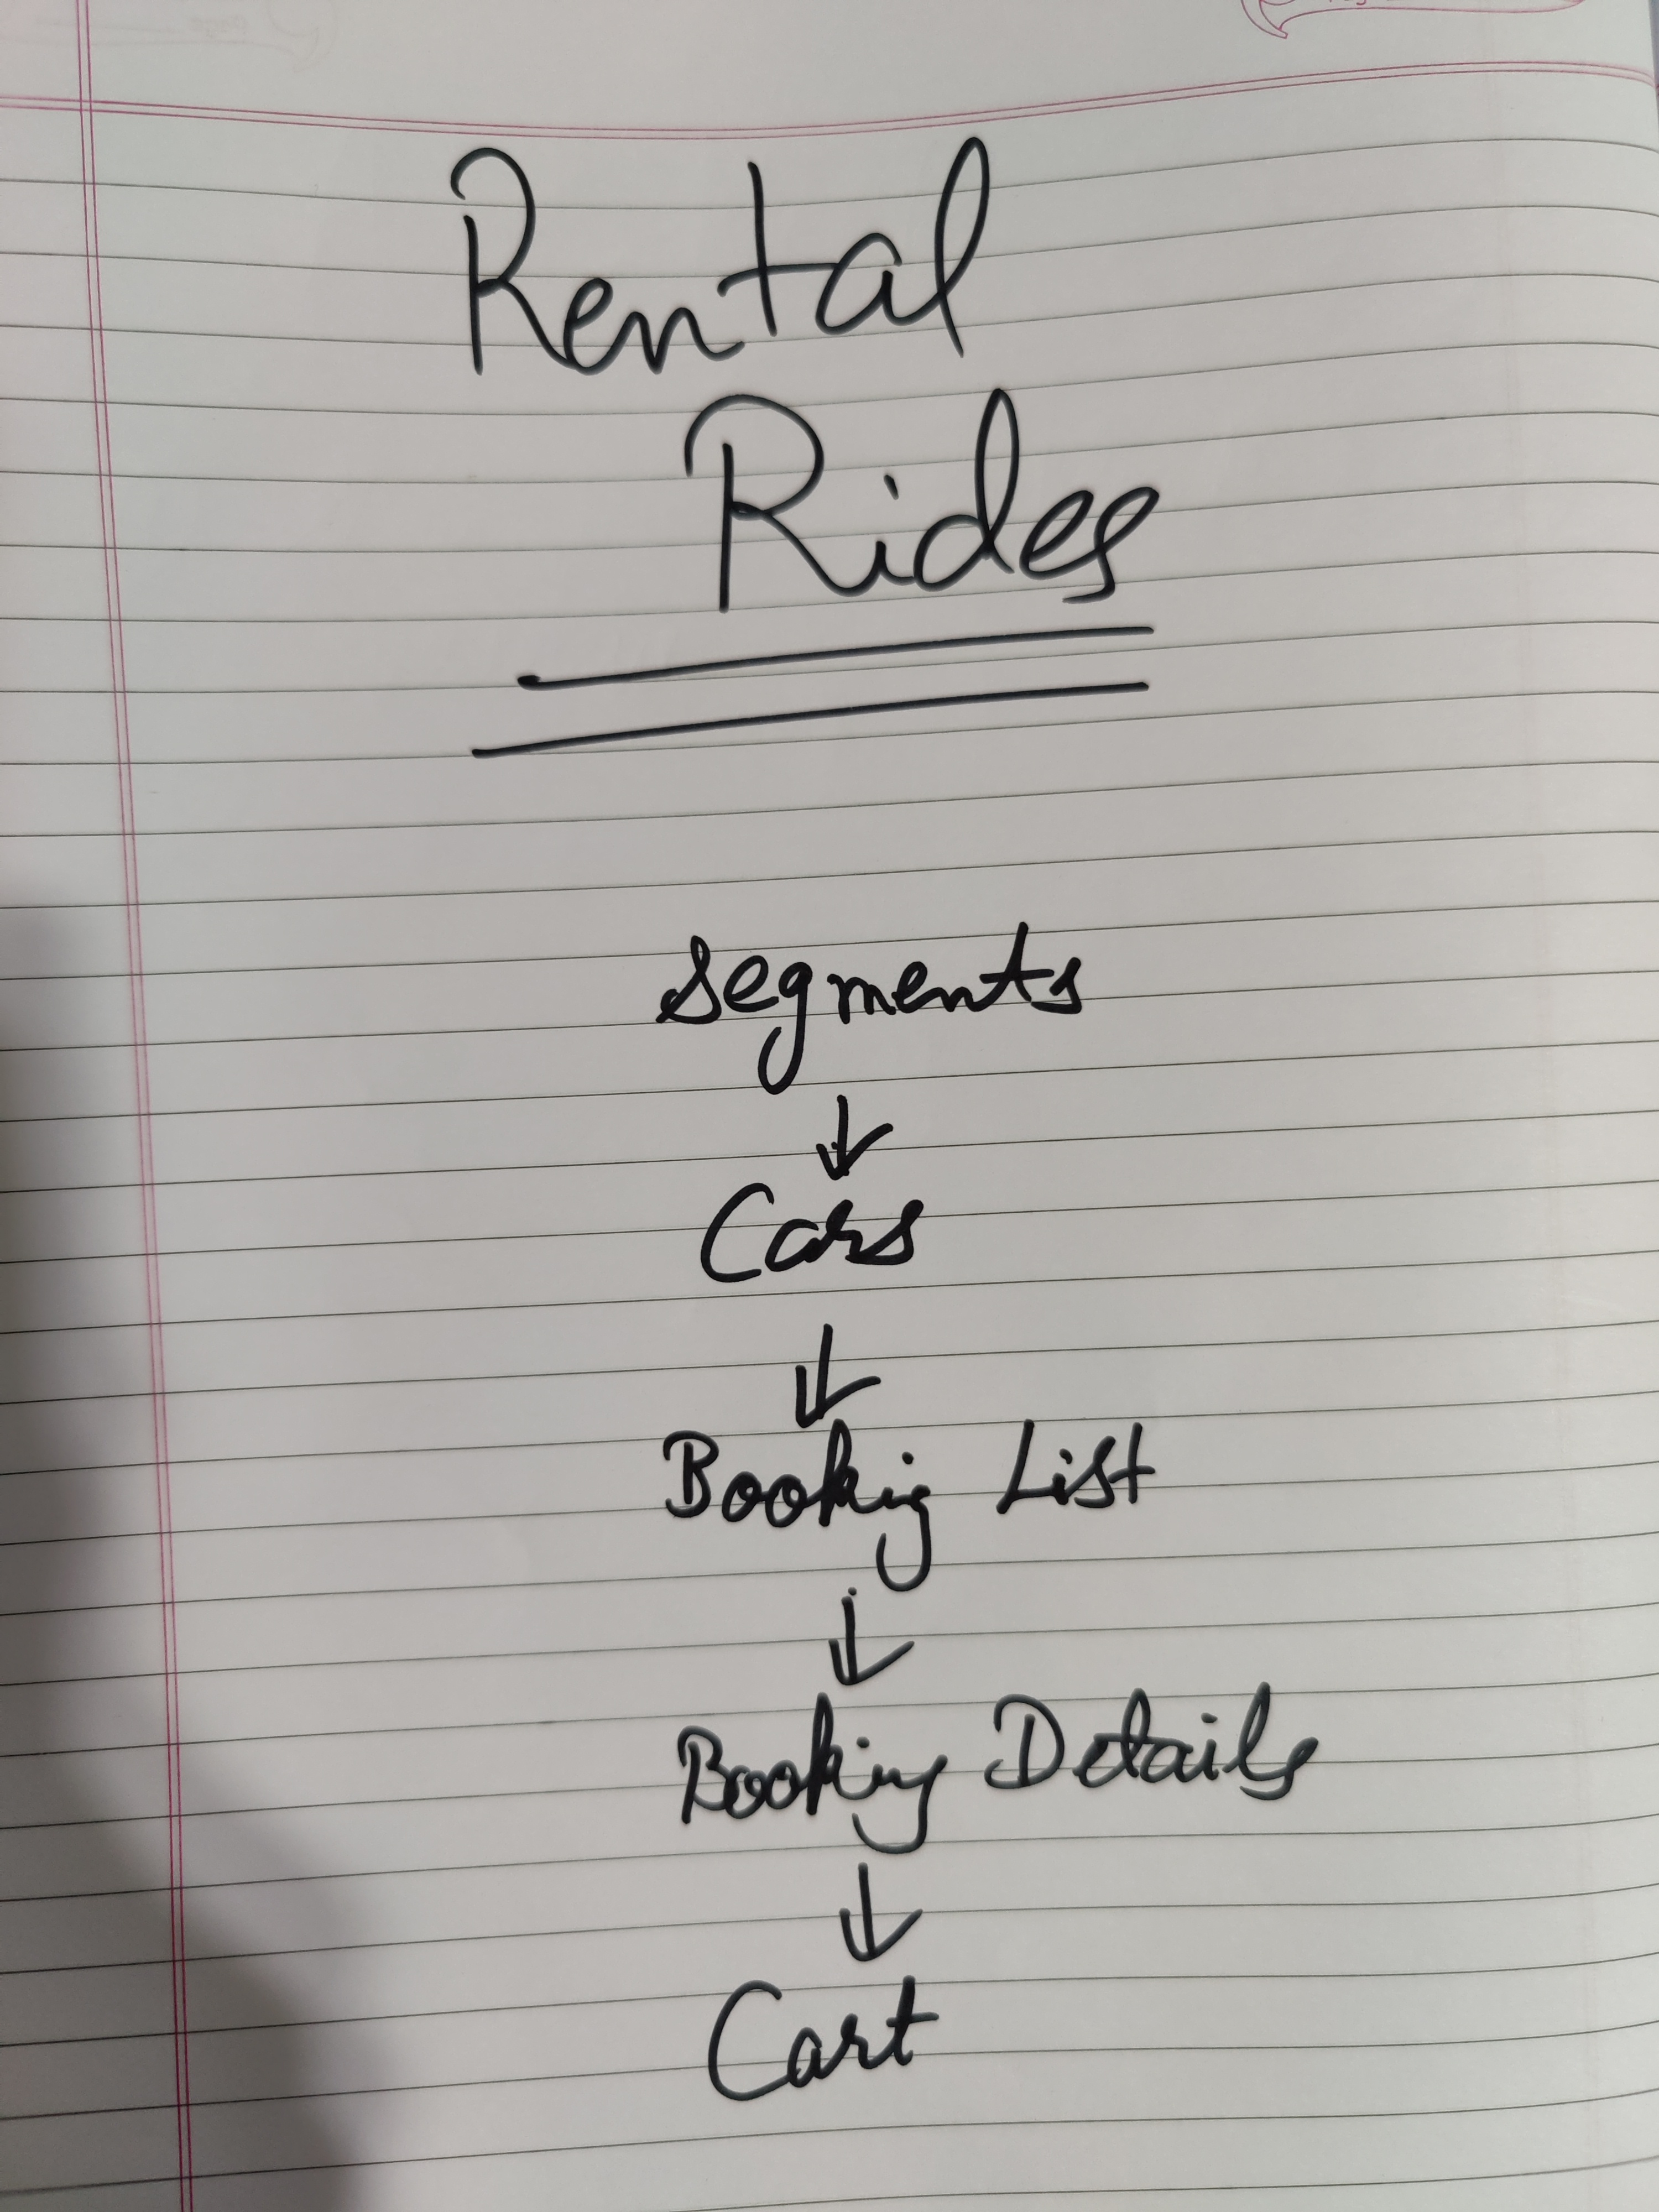 Rental
Rides
Segments
↓
Cars
↓
Booking List
↓
Booking Details
↓
Cart